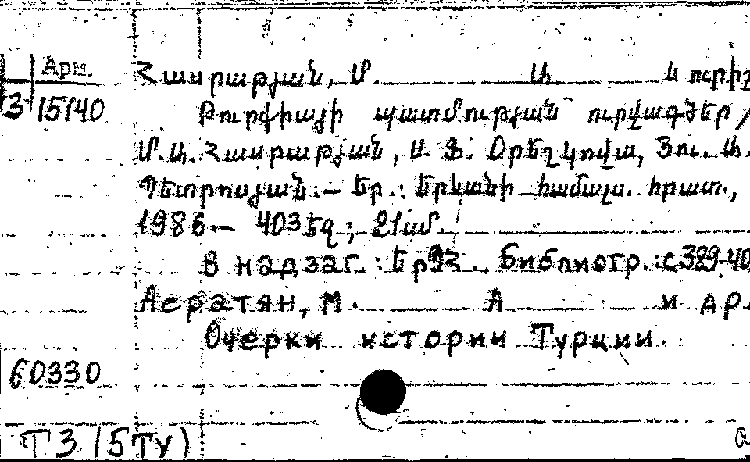 Арм.
Հասրաթյան, Մ. Ա. և ուրիշ
3 15140
Թուրքիայի պատմության ուրվագծեր /
Մ. Ա. Հասրաթյան, Ս. Ֆ. Օրեշկովա, Յու. Ա.
Պետրոսյան. – Եր. : Երևանի համալս. հրատ.,
1986 – 403 եզ ; 21 սմ.
В надзаг. : ԵրՊՀ. Библиогр. : с 389-40
Асратян, М. А и др.
Очерки истории Турции.
60330
Т3 (5ТУ)